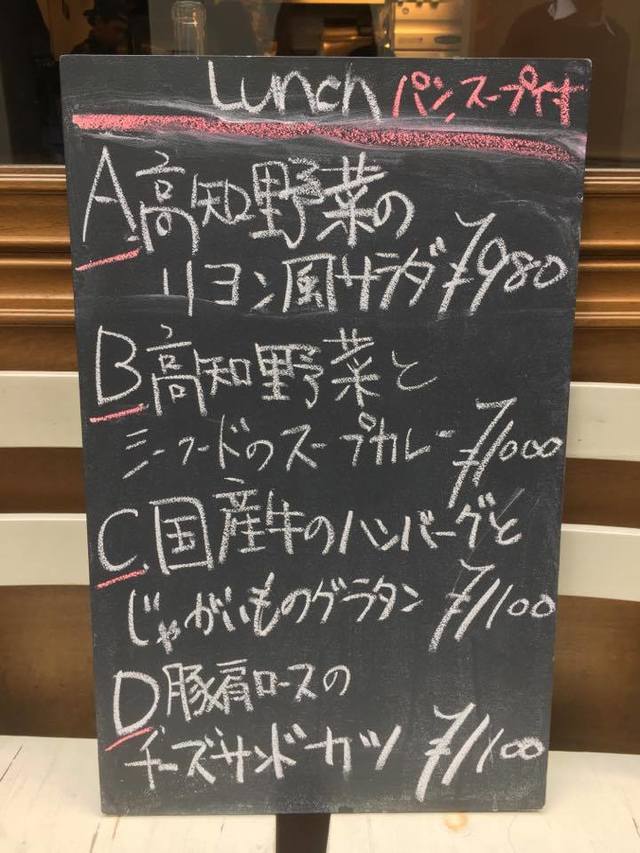 Lunch パン、スープ付
A. 高知野菜の
リヨン風サラダ ¥980
B 高知野菜と
シーフードのスープカレー ¥1000
C. 国産牛のハンバーグと
じゃがいものグラタン ¥1100
D 豚肩ロースの
チーズサンドカツ ¥1100